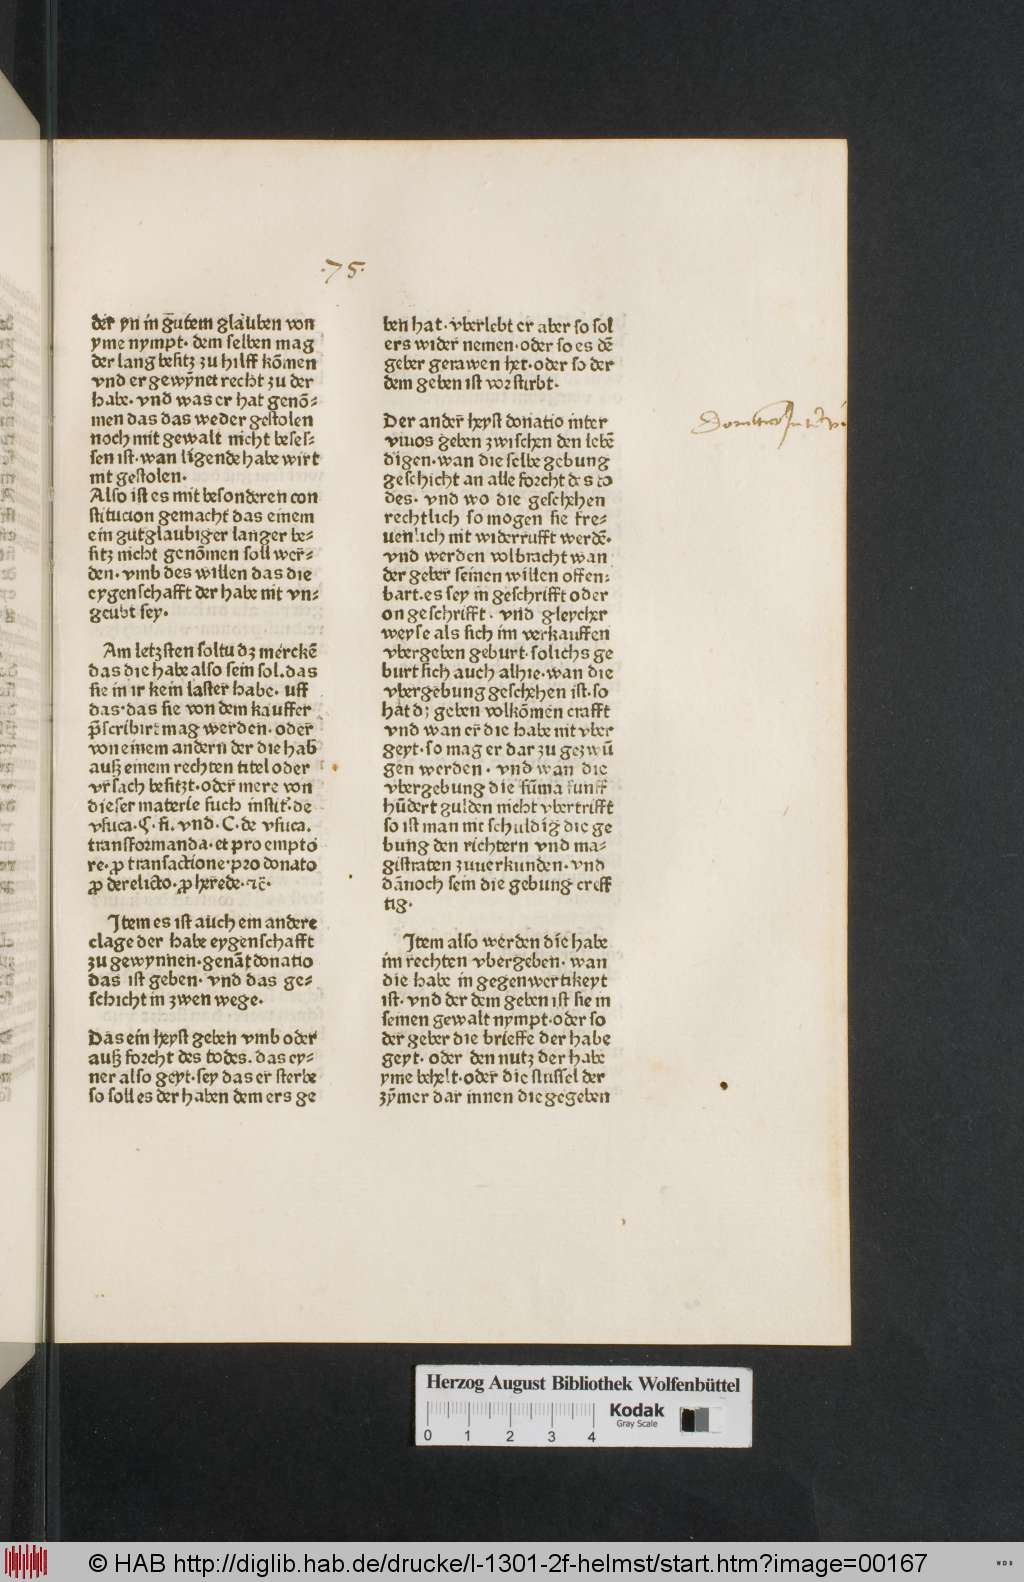 ·75·
der yn in gutem glauben von
yme nympt· dem selben mag
der lang besitz zu hilff kõmen
vnd er gewỹnet recht zu der
habe· vnd was er hat genõ⸗
men das das weder gestolen
noch mit gewalt nicht beses⸗
sen ist· wan ligende habe wirt
nit gestolen·
Also ist es mit besonderen con
stitucion gemacht das einem
ein gutglaubiger langer be⸗
sitz nicht genõmen soll wer⸗
den· vmb des willen das die
eygenschafft der habe nit vn⸗
geubt sey·
Am letzsten soltu dz merckẽ
das die habe also sein sol. das
sie in ir kein laster habe· uff
das· das sie von dem kauffer
p̃scribirt mag werden· oder
von einem andern der die hab
auß einem rechten titel oder
vrsach besitzt· oder mere von
dieser materie such instit· de
vsuca· C· fi. vnd· C· de vsuca.
transformanda· et pro empto
re· ꝓ transactione· pro donato
ꝓ derelicto· ꝓ herede· ⁊c̃·
Item es ist auch ein andere
clage der habe eygenschafft
zu gewynnen· genãt donatio
das ist geben· vnd das ge⸗
schicht in zwen wege·
Das ein heyst geben vmb oder
auß forcht des todes. das ey⸗
ner also geyt· sey das er sterbe
so soll es der haben dem ers ge
ben hat· vberlebt er aber so sol
ers wider nemen· oder so es dẽ
geber gerawen het· oder so der
dem geben ist vor stirbt·
Der ander heyst donatio inter
viuos geben zwischen den lebẽ
digen· wan die selbe gebung
geschicht an alle forcht des to
des· vnd wo die geschehen
rechtlich so mogen sie fre⸗
uenlich nit widerrufft werdẽ·
vnd werden volbracht wan
der geber seinen willen offen⸗
bart. es sey in geschrifft oder
on geschrifft· vnd gleycher
weyse als sich im verkauffen
vbergeben geburt· solichs ge
burt sich auch alhie· wan die
vbergebung geschehen ist· so
hat dz geben volkõmen crafft
vnd wan er die habe nit vber
geyt· so mag er dar zu gezwũ
gen werden· vnd wan die
vbergebung die sũma funff
hũdert gulden nicht vbertrifft
so ist man nit schuldig die ge
bung den richtern vnd ma⸗
gistraten zuuerkunden· vnd
dãnoch sein die gebung creff
tig·
Item also werden die habe
im rechten vbergeben· wan
die habe in gegenwertikeyt
ist· vnd der dem geben ist sie in
seinen gewalt nympt· oder so
der geber die brieffe der habe
geyt· oder den nutz der habe
yme behelt· oder die slussel der
zỹmer dar innen die gegeben
Herzog August Bibliothek Wolfenbüttel
Kodak
Gray Scale
0 1 2 3 4
© HAB http://diglib.hab.de/drucke/l-1301-2f-helmst/start.htm?image=00167
WDB